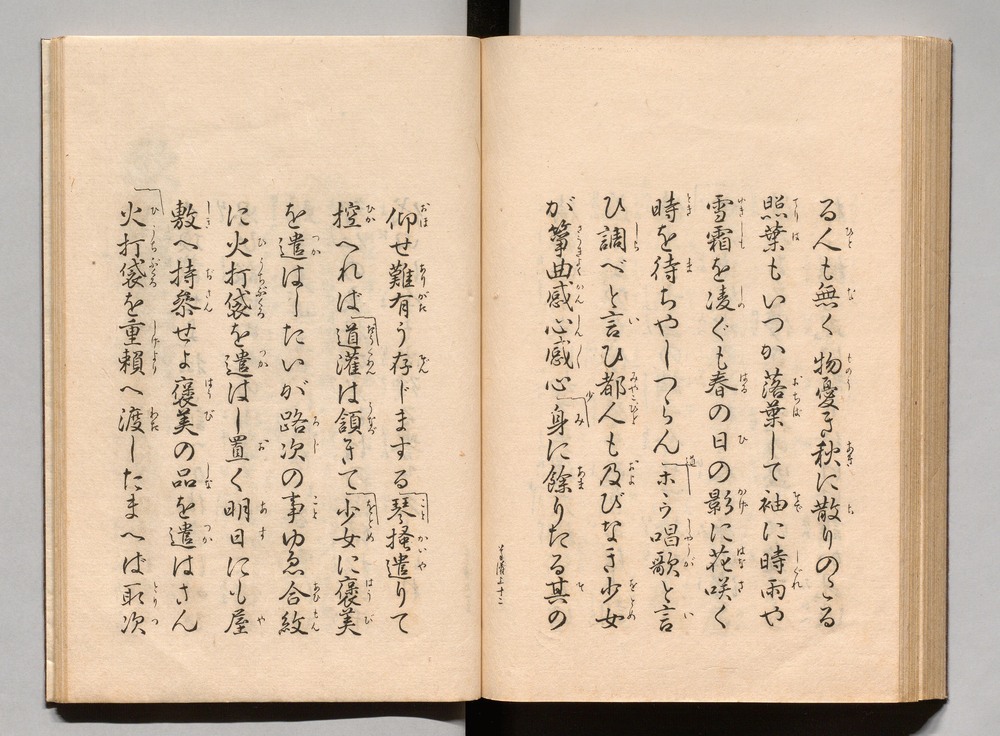 る人も無く物憂き秋に散りのこる
照葉もいつか落葉して袖に時雨や
雪霜を凌ぐも春の日の影に花咲く
時を待ちやしつらん「ホウ唱歌と言
ひ調べと言ひ都人も及びなき少女
が箏曲感心感心「身に餘りたる其の
仰せ難有う存じまする「琴掻遣りて
控へれば「道灌は頷きて「少女に褒美
を遣はしたいが路次の事ゆゑ合紋
に火打袋を遣はし置く明日にも屋
敷へ持參せよ褒美の品を遣はさん
「火打袋を重頼へ渡したまへば取次